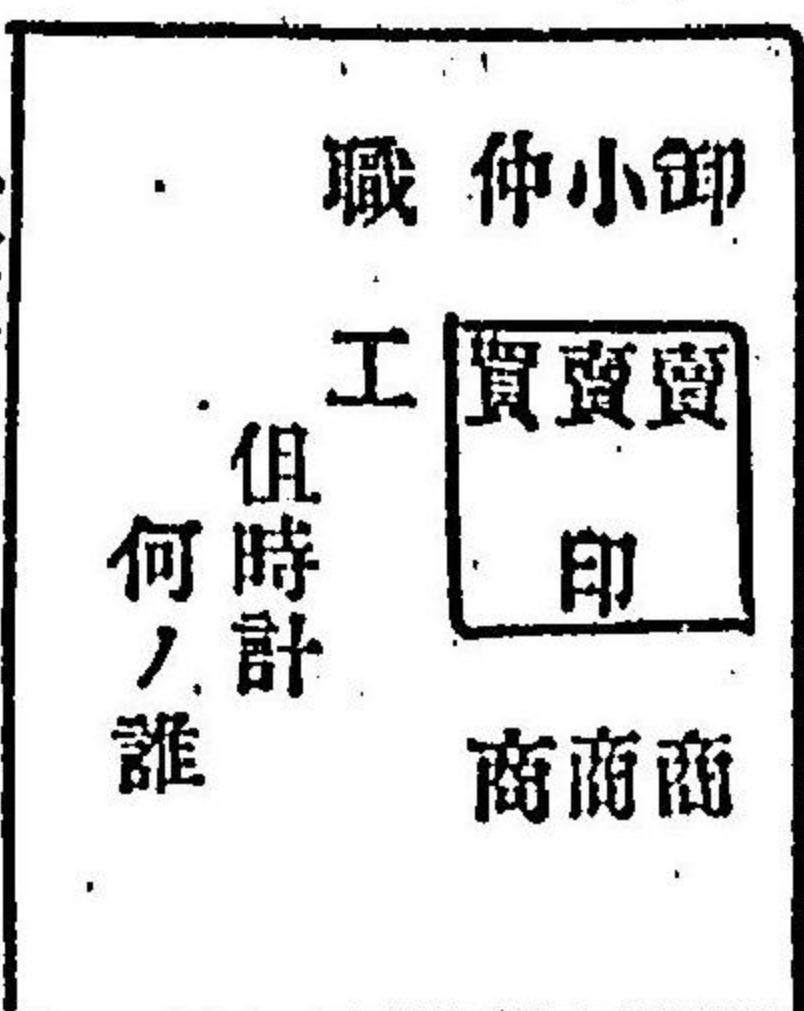 卸賣商
小賣印商
仲買商
職工
伹時計
何ノ誰